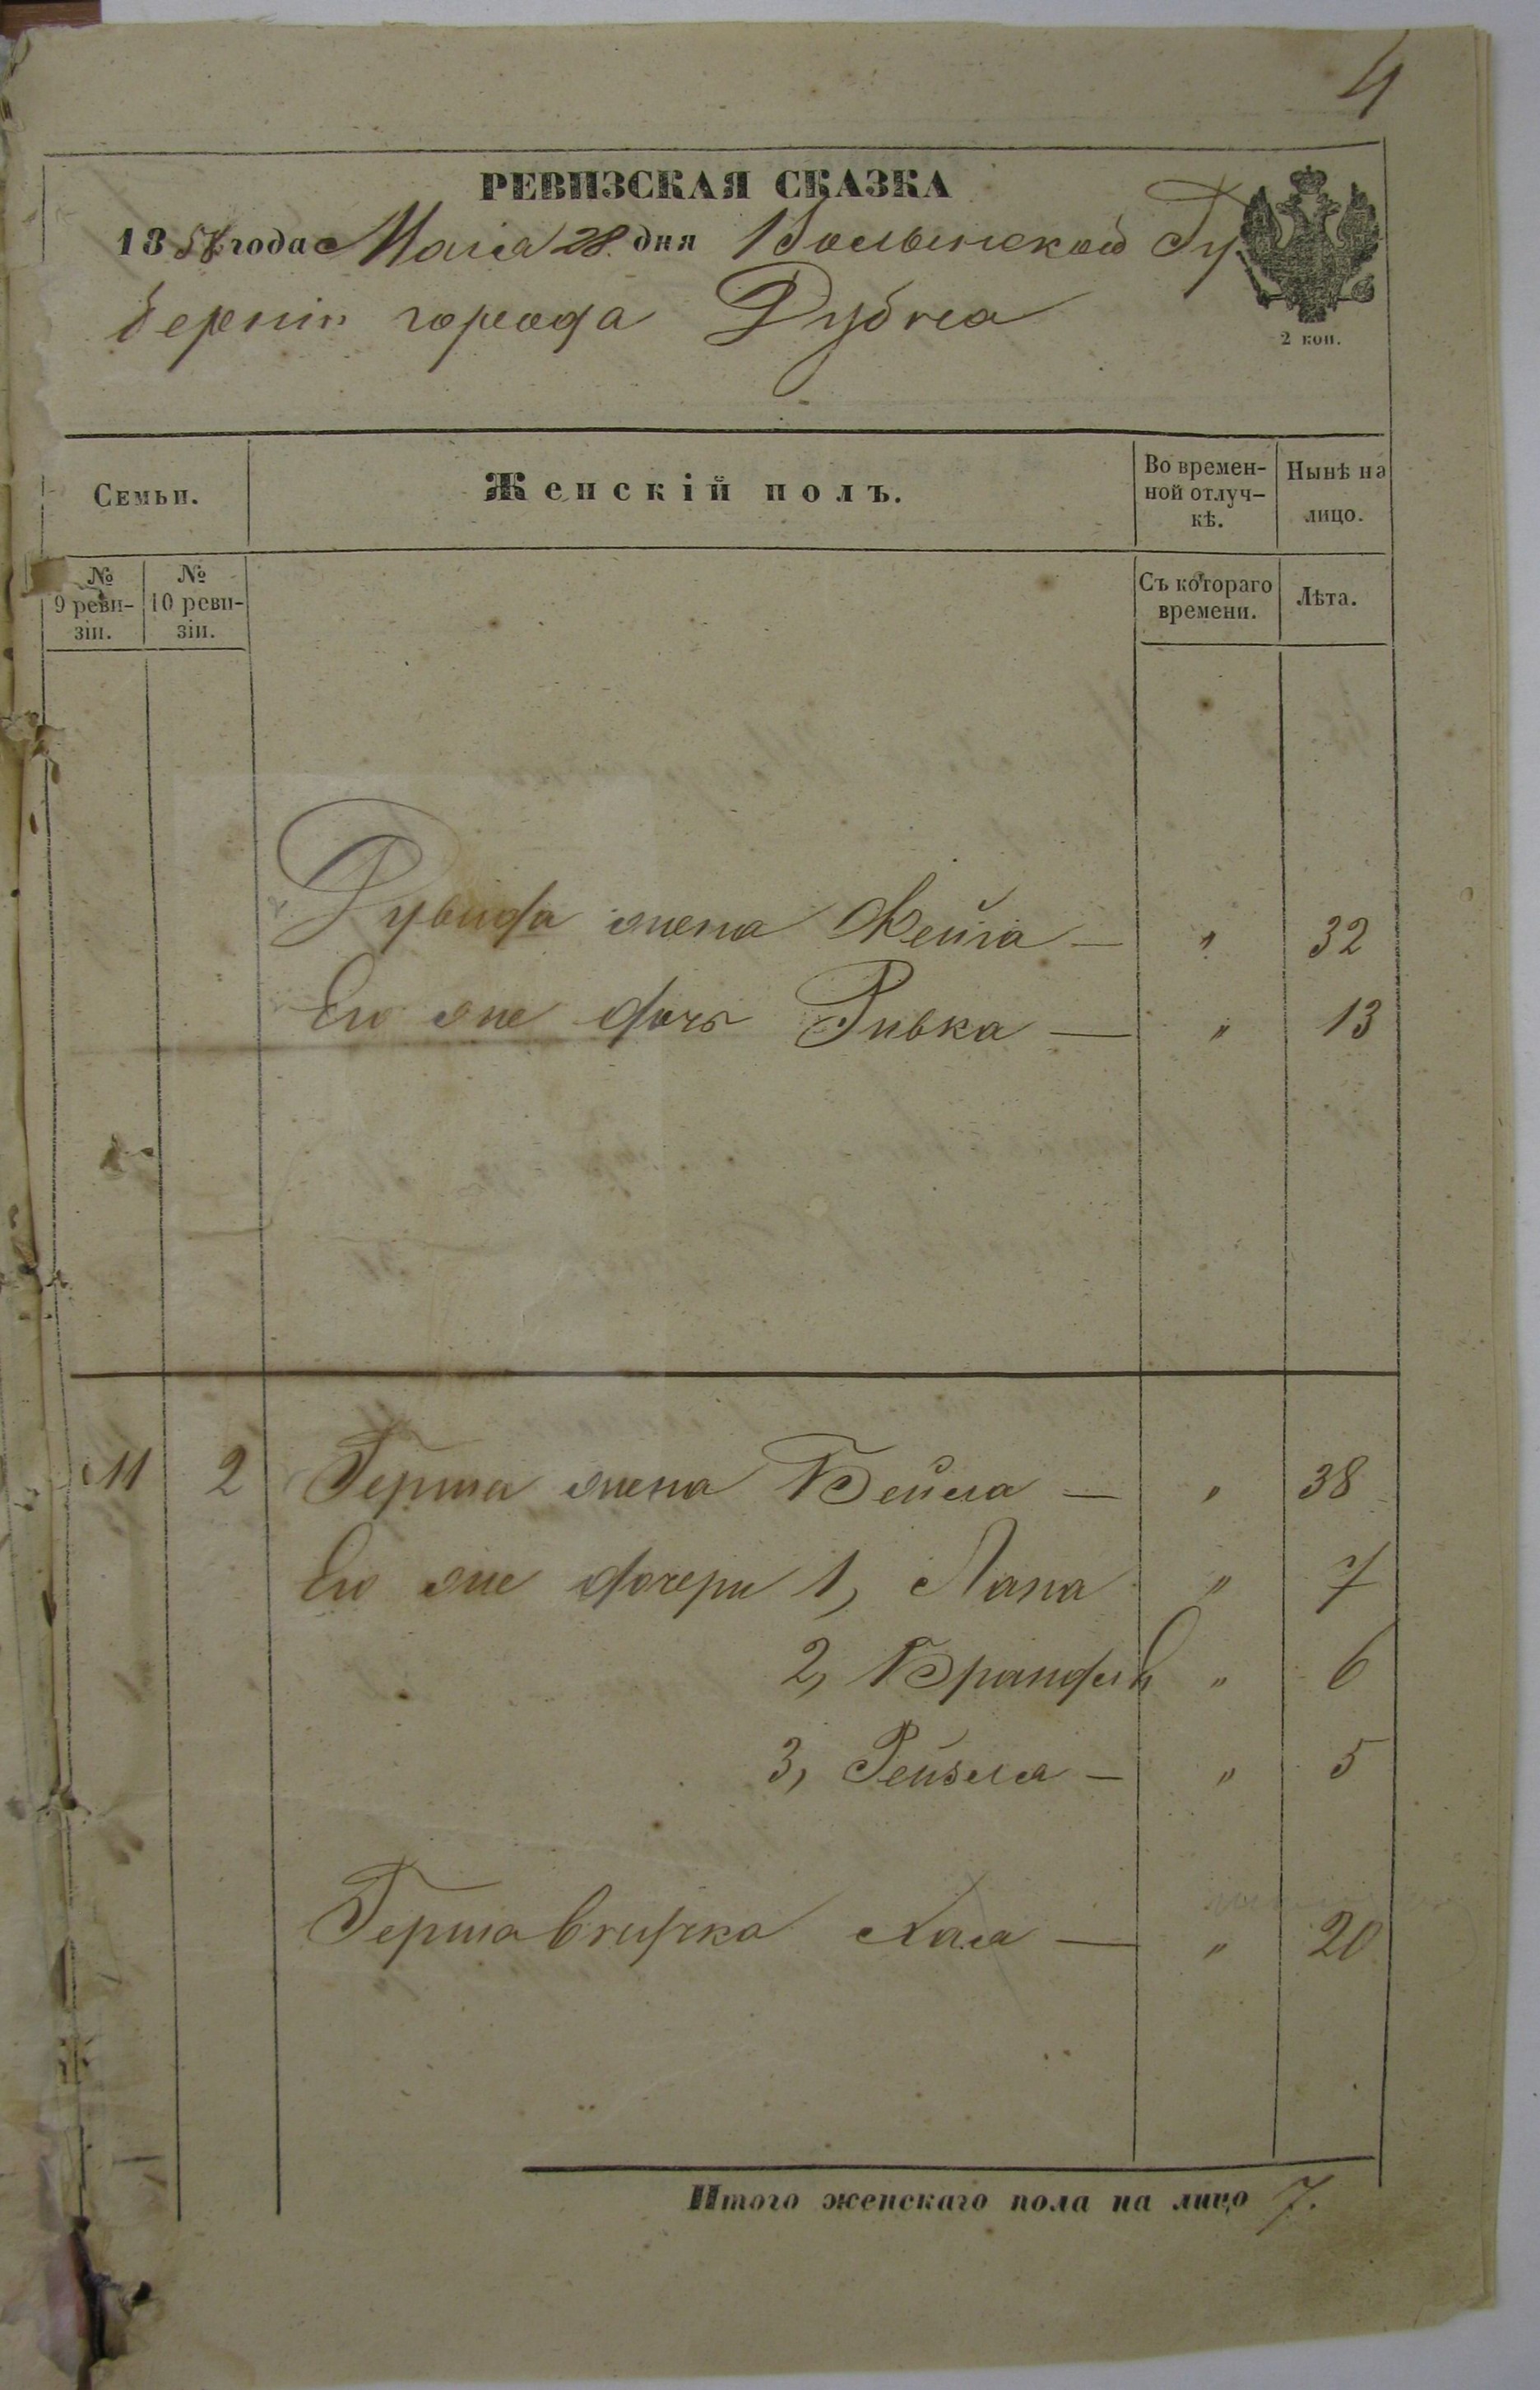 4
РЕВИЗСКАЯ СКАЗКА
1858 года Маія 28 дня Волынской Гу
берніи города Дубна
2 коп.
Семьи.
Женскій полъ.
Во времен-
ной отлуч-
кѣ.
Нынѣ на
лицо.
№
9 реви-
зіи.
№
10 реви-
зіи.
Съ котораго
времени.
Лѣта.
Рувина жена Фейга — " 32
Его же дочь Ривка — " 13
11 2 Герша жена Бейла — " 38
Его же дочери 1, Лана " 7
2, Брандля " 6
3, Рейзля — " 5
Герша внучка Хая — " 20
Итого женскаго пола на лицо 7.